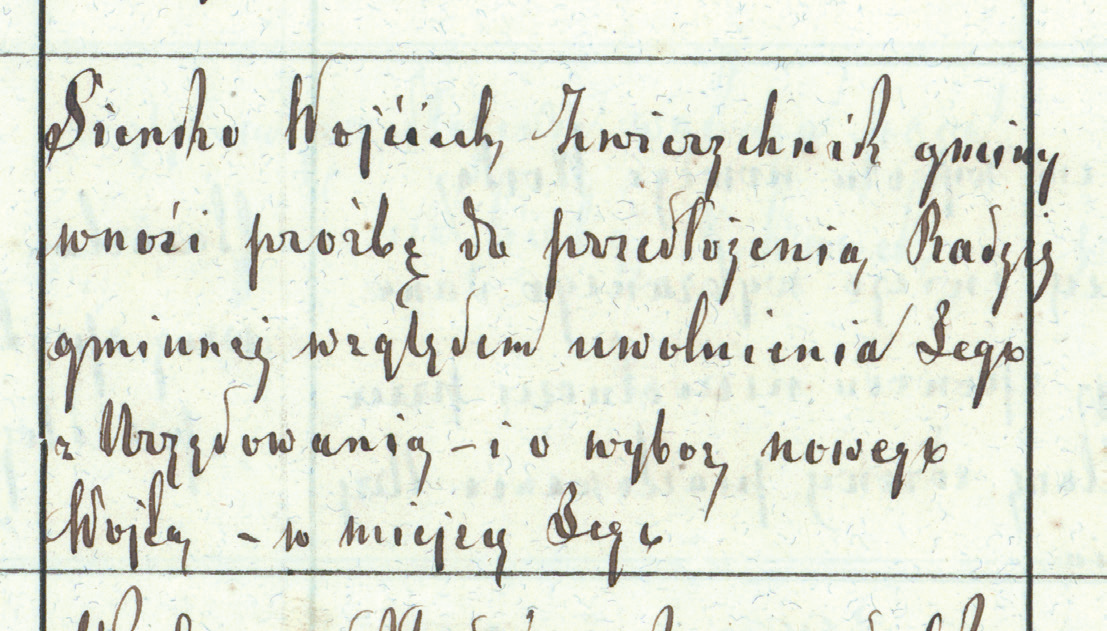 Sieńko Wojciech, Zwierzchnik gminy
wnosi prośbę do przedłożenia, Radzie
gminnej względem uwolnienia Jego
z Urzędowania – i o wybor, nowego
Wojta, – w miejscu Jego